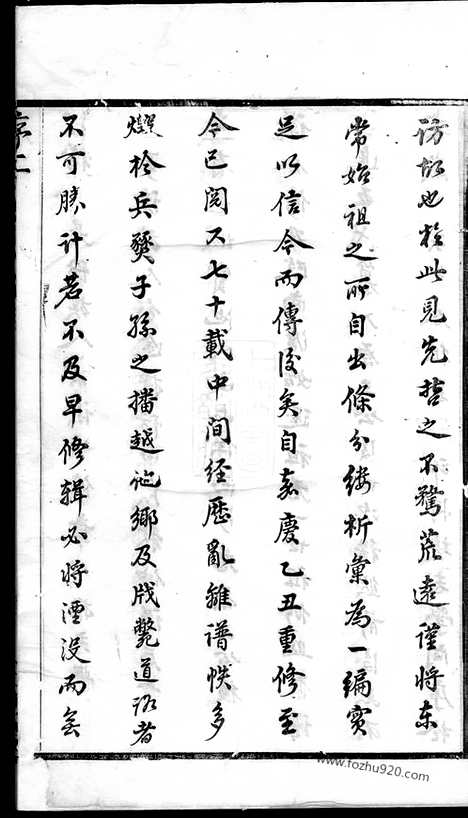 訪故也於此見先哲之不騖荒遠謹將東
常始祖之所自出條分縷析彙為一編實
足以信今而傳後矣自嘉慶乙丑重修至
今已閲又七十載中间經歷亂離譜帙多
燬於兵燹子孫之播越他鄉及戕斃道路者
不可勝计若不及早修辑必將湮没而無
序二
www.fozhu920.com